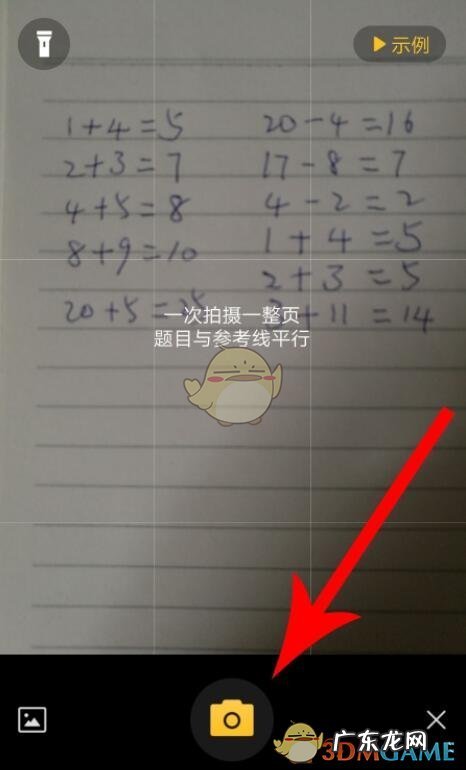 示例
1+4=5
2+3=7
4+5=8
8+9=10
20+5=25
20-4=16
17-8=7
4-2=2
1+4=5
2+3=5
3+11=14
一次拍摄一整页
题目与参考线平行
广东龙网
3DMGAME